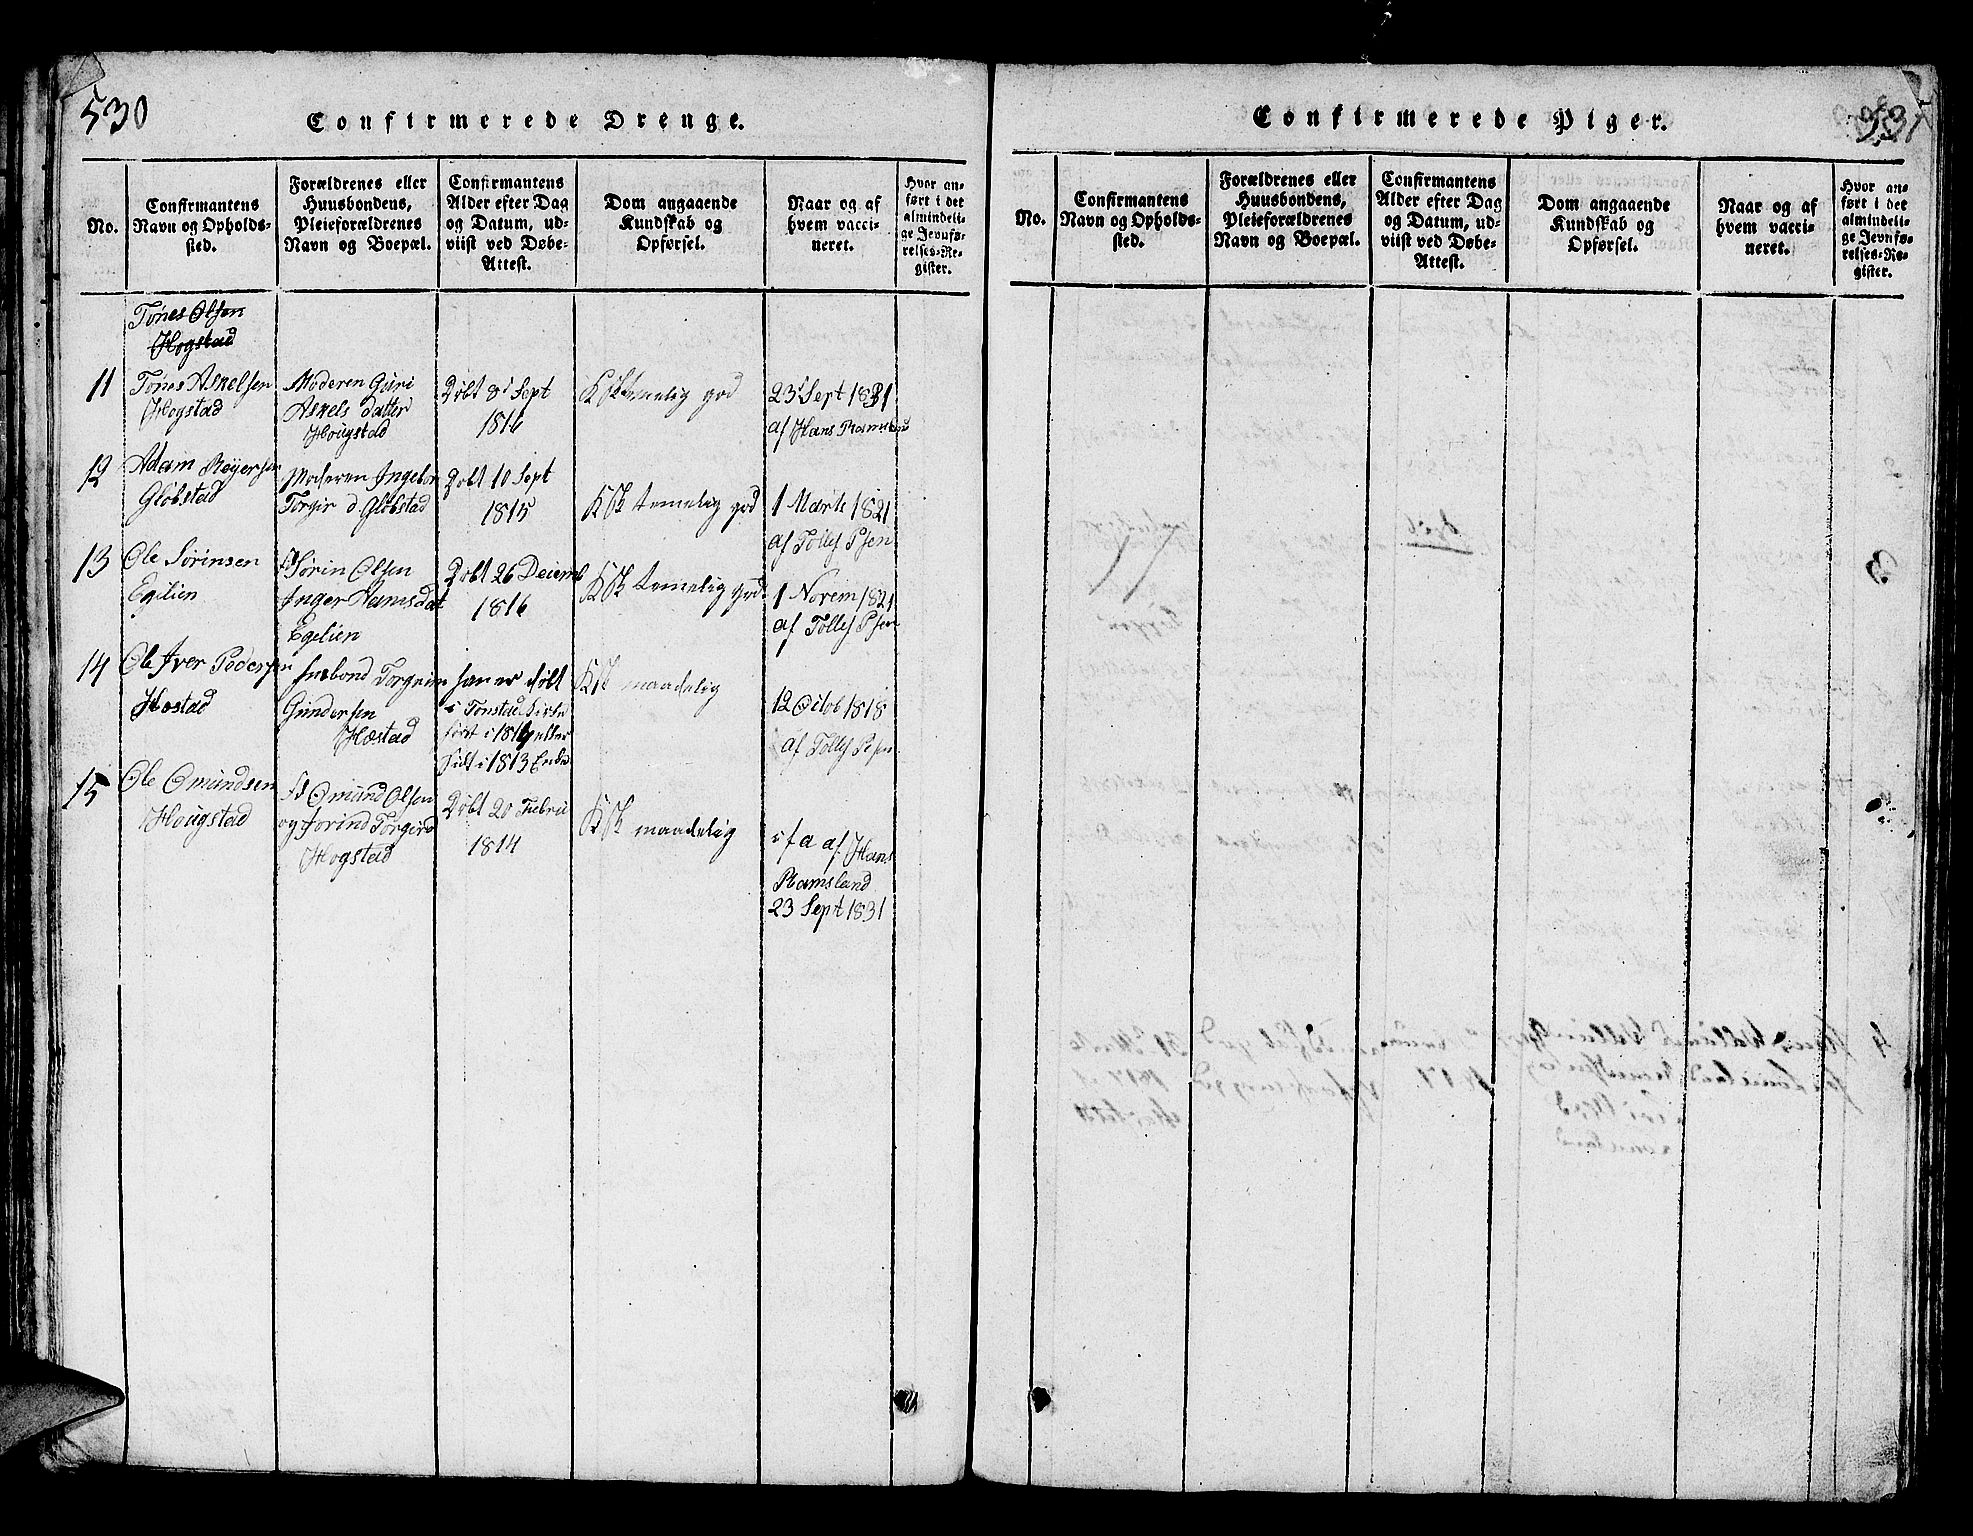 530
Confirmerede Drenge.
No.
Confirmantens
Navn og Opholds-
sted.
Forældrenes eller
Huusbondens,
Pleieforældrenes
Navn og Boepæl.
Confirmantens
Alder efter Dag
og Datum, ud-
viist ved Døbe-
Attest.
Dom angaaende
Kundskab og
Opførsel.
Naar og af
hvem vacci-
neret.
Hvor an-
ført i det
almindeli-
ge Jevnfø-
relses-Re-
gister.
Tønes Olsen
Hogstad
11
Tønes Asnelsen
Hogstad
Moderen Guri
Asnels datter
Hougstad
Døbt 8d Sept
1816
temelig god
23d Sept 1831
af Hans
12
Adam Reyersen
Globstad
Moderen Ingebor
Torgir d. Globstad
Døbt 10 Sept
1815
K Sk temelig god
1 Marts 1821
af Tollef Psen
13
Ole Sørinsen
Egilien
Sørin Olsen
Inger Hansdat
Egelien
Døbt 26 Decemb
1816
K Sk temelig god
1 Novem 1821
af Tollef Psen
14
Ole Iver Pedersen
Hæstad
Husbond Torgrim
Gundersen
Hæstad
han er døbt
i Tonstad Kirke
først i 1814 eller
sidst i 1813
K Sk maadelig
12 Octob 1818
af Tollef Psen
15
Ole Omundsen
Hougstad
Omund Olsen
og Jorind Torgird
Hogstad
Døbt 20 Febru
1814
K Sk maadelig
af Hans
Ramsland
23 Sept 1831
531
Confirmerede Piger.
No.
Confirmantens
Navn og Opholds-
sted.
Forældrenes eller
Huusbondens,
Pleieforældrenes
Navn og Boepæl.
Confirmantens
Alder efter Dag
og Datum, ud-
viist ved Døbe-
Attest.
Dom angaaende
Kundskab og
Opførsel.
Naar og af
hvem vacci-
neret.
Hvor an-
ført i det
almindeli-
ge Jevnfø-
relses-Re-
gister.